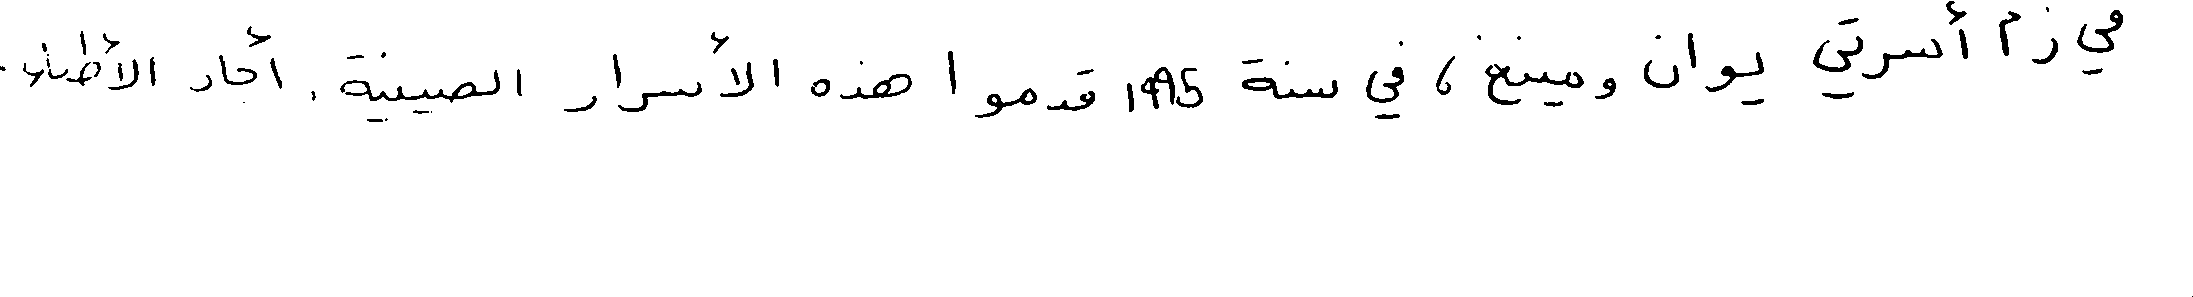 في زم أسرتي يوان ومينغ، في سنة 1995 قدموا هذه الأسرار الصينية. أجاد الأطباء.